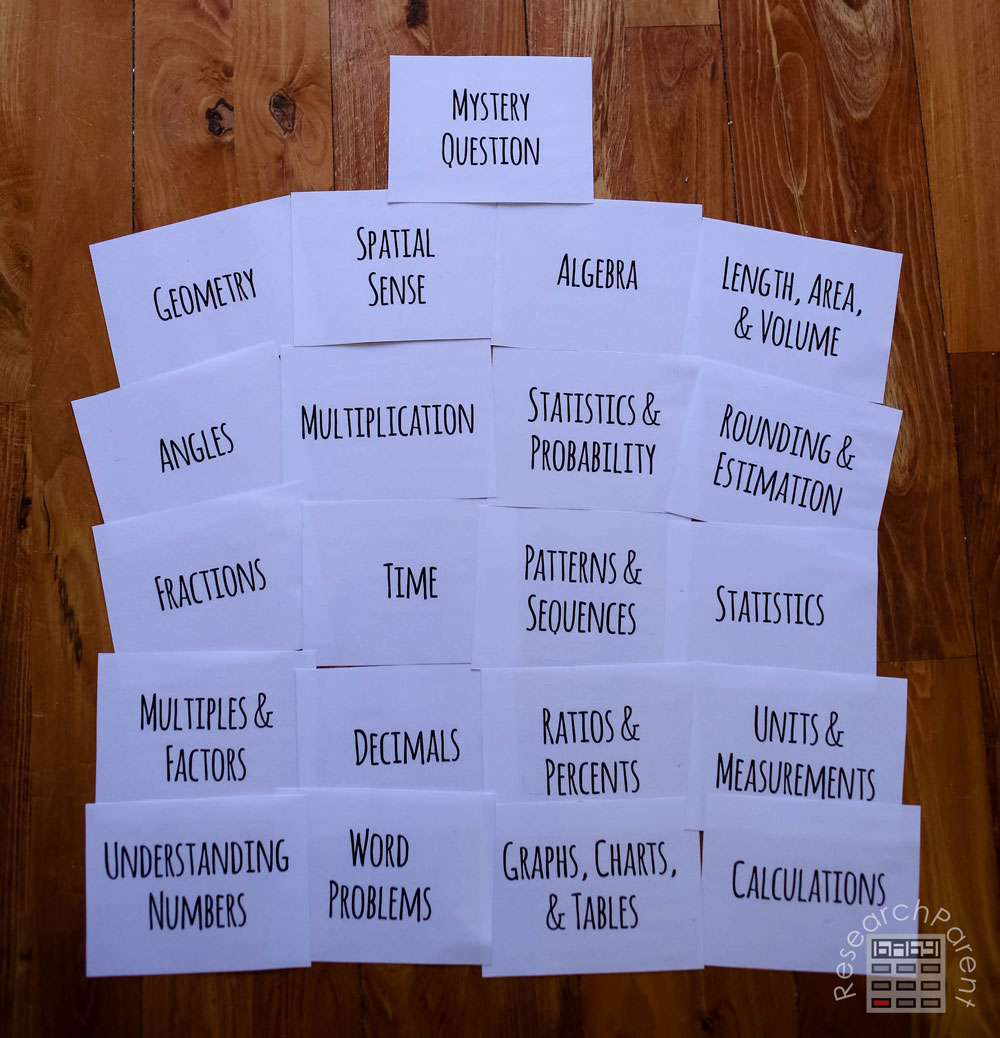 MYSTERY
QUESTION
GEOMETRY
SPATIAL
SENSE
ALGEBRA
LENGTH, AREA,
& VOLUME
ANGLES
MULTIPLICATION
STATISTICS &
PROBABILITY
ROUNDING &
ESTIMATION
FRACTIONS
TIME
PATTERNS &
SEQUENCES
STATISTICS
MULTIPLES &
FACTORS
DECIMALS
RATIOS &
PERCENTS
UNITS &
MEASUREMENTS
UNDERSTANDING
NUMBERS
WORD
PROBLEMS
GRAPHS, CHARTS,
& TABLES
CALCULATIONS
ResearchParent